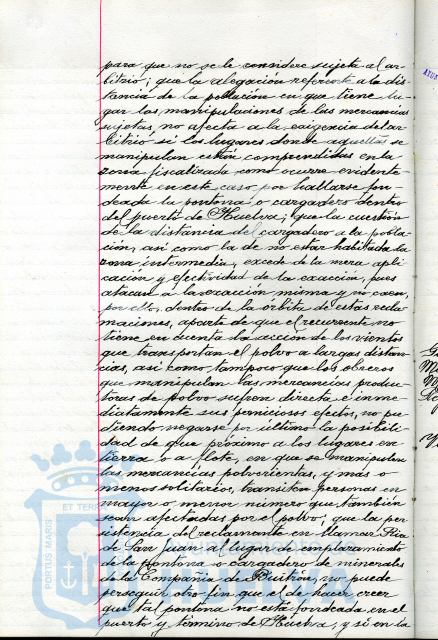 para que no se le considere sujeta al ar-
bitrio; que la alegación referente a la dis-
tancia de la población en que tiene lu-
gar las manipulaciones de las mercancias
sujetas, no afecta a la exigencia del ar-
bitrio si los lugares donde aquellas se
manipulan estén comprendidas en la
zona fiscalizada como ocurre evidente-
mente en este caso por hallarse fon-
deada la pontona o cargadero dentro
del puerto de Huelva; que la cuestión
de la distancia del cargadero a la pobla-
ción, asi como la de no estar habitada la
zona intermedia, excede de la mera apli-
cación y efectividad de la exacción, pues
atacan a la exacción misma y no caen,
por ello, dentro de la órbita de estas recla-
maciones, aparte de que el recurrente no
tiene en cuenta la acción de los vientos
que transportan el polvo a largas distan-
cias, asi como tampoco que los obreros
que manipulan las mercancias produc-
toras de polvo sufren directa e inme-
diatamente sus perniciosos efectos, no pu-
diendo negarse por último la posibili-
dad de que próximo a los lugares en
tierra o a flote, en que se manipulan
las mercancias polvorientas, y más o
menos solitarios, transiten personas en
mayor o menor número que también
sean afectadas por el polvo; que la per-
sistencia del reclamante en llamar Ria
de San Juan al lugar de emplazamiento
de la pontona o cargadero de minerales
de la Compañia de Buitrón, no puede
perseguir otro fin que el de hacer creer
que tal pontona no está fondeada en el
puerto y término de Huelva, y si en la
ET TERR
PORTUS MARIS